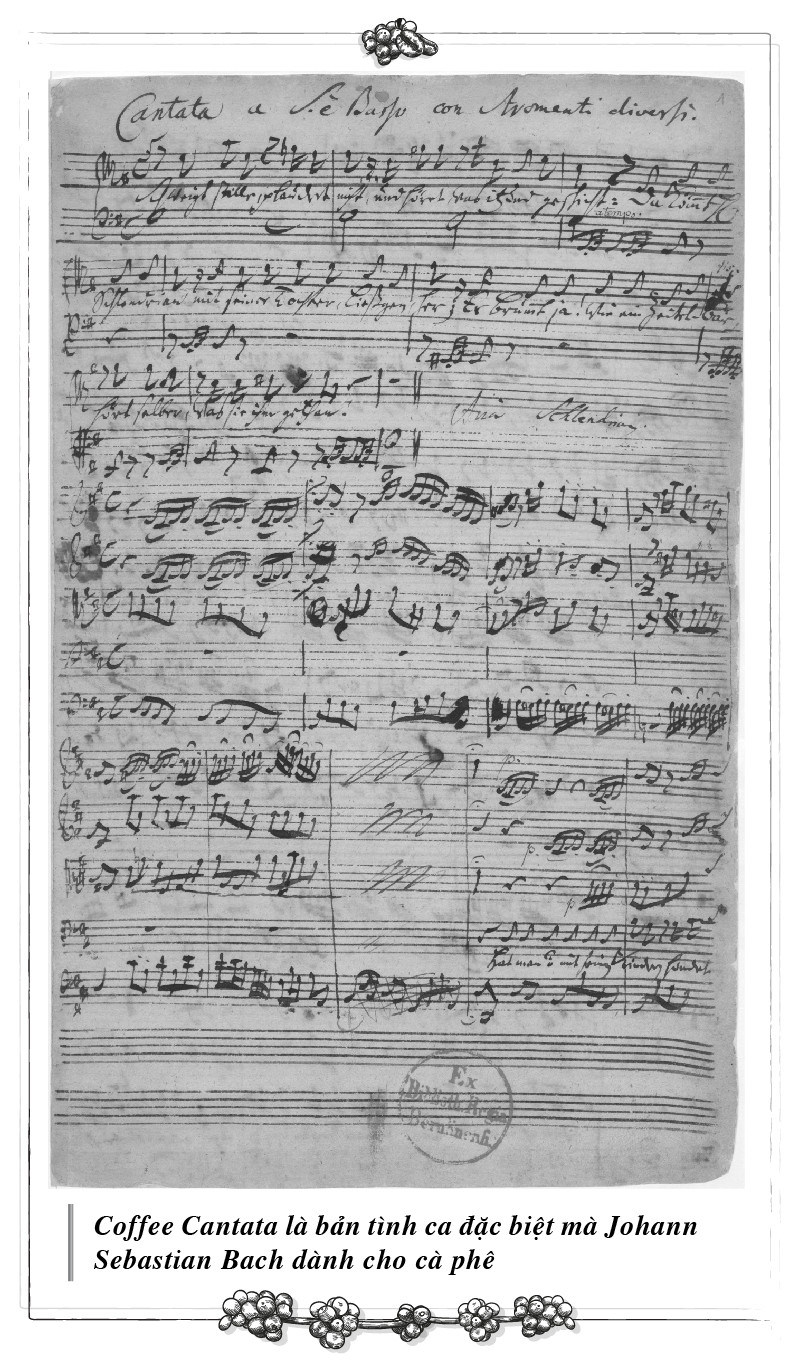 Cantata a S. è Basso con Stromenti diversi.
Schweigt stille, plaudert nicht, und höret was itzund geschicht: Da kömmt H
a tempo.
Schlendrian mit seiner Tochter Ließgen her; Er brummt ja wie ein Zeidel Bär
hört selber, was sie ihm gethan!
Aria Schlendrian.
Hat man nicht mit seinen Kindern hundert
Ex
Biblioth. Regia
Berolinensi.
Coffee Cantata là bản tình ca đặc biệt mà Johann
Sebastian Bach dành cho cà phê